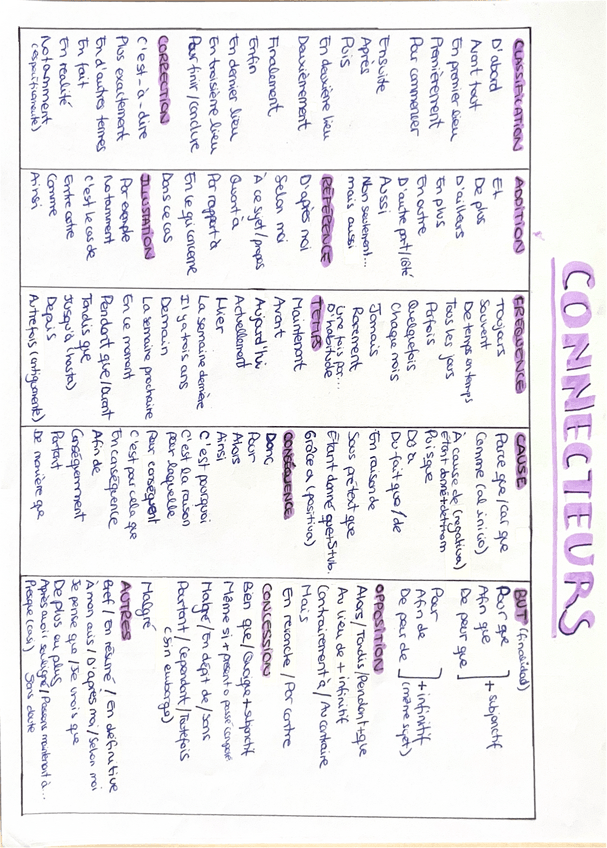 CONNECTEURS
CLASSIFICATION
D'abord
Avant tout
En premier lieu
Premièrement
Pour commencer
Ensuite
Après
Puis
En deuxième lieu
Deuxièmement
Finalement
Enfin
En dernier lieu
En troisième lieu
Pour finir / conclure
CORRECTION
C'est-à-dire
Plus exactement
En d'autres termes
En fait
En réalité
Notamment
ADDITION
Et
De plus
D'ailleurs
En plus
En outre
D'autre part / côté
Aussi
Non seulement...
mais aussi
RÉFÉRENCE
D'après moi
Selon moi
À ce sujet / propos
Quant à
Par rapport à
En ce qui concerne
Dans ce cas
ILLUSTRATION
Par exemple
Notamment
C'est le cas de
Entre autre
Comme
Ainsi
FRÉQUENCE
Toujours
Souvent
De temps en temps
Tous les jours
Parfois
Quelquefois
Chaque mois
Jamais
Rarement
Une fois par...
D'habitude
TEMPS
Maintenant
Avant
Aujourd'hui
Actuellement
Hier
La semaine dernière
Il y a trois ans
Demain
La semaine prochaine
En ce moment
Pendant que / Durant
Tandis que
Jusqu'à (hasta)
Depuis
Autrefois (antiguamente)
CAUSE
Parce que / car que
Comme (al inicio)
À cause de (negativa)
Puisque
Dû à
Du fait que / de
En raison de
Sous prétext que
Étant donné que + Sub.
Grâce à (positiva)
CONSÉQUENCE
Donc
Pour
Alors
Ainsi
C'est pourquoi
C'est la raison
pour laquelle
Pour conséquent
C'est pour cela que
En conséquence
Afin de
Conséquemment
Partant
De manière que
BUT (finalidad)
Pour que
Afin que
De peur que
+ subjonctif
Pour
Afin de
De peur de
+ infinitif
(même sujet)
OPPOSITION
Alors / Tandis / pendant + que
Au lieu de + infinitif
Contrairement à / Au contraire
Mais
En revanche / Par contre
CONCESSION
Bien que / Quoique + subjonctif
Même si + présent o passé composé
Malgré / En dépit de / Sans
Pourtant / Cependant / Toutefois
(sin embargo)
Malgré
AUTRES
Bref / En résumé / En définitive
À mon avis / D'après moi / Selon moi
Je pense que / Je crois que
De plus en plus
Après avoir souligné / Passons maintenant à...
Presque (casi) Sans doute